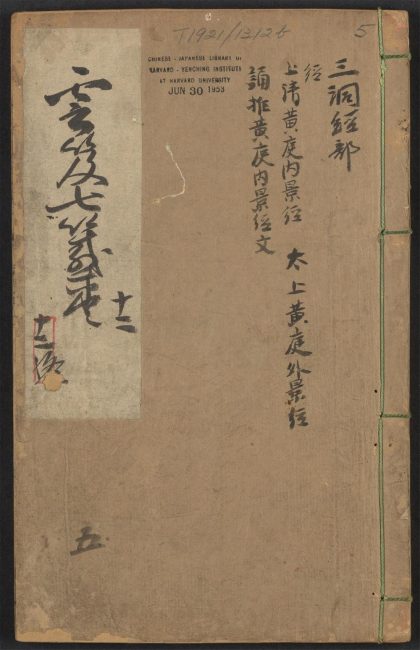 T1921/1312b
5
CHINESE - JAPANESE LIBRARY OF
HARVARD - YENCHING INSTITUTE
AT HARVARD UNIVERSITY
JUN 30 1953
三洞經部
經
上清黃庭內景經 太上黃庭外景經
誦推黃庭內景經文
雲笈七籤
十一
十二
五